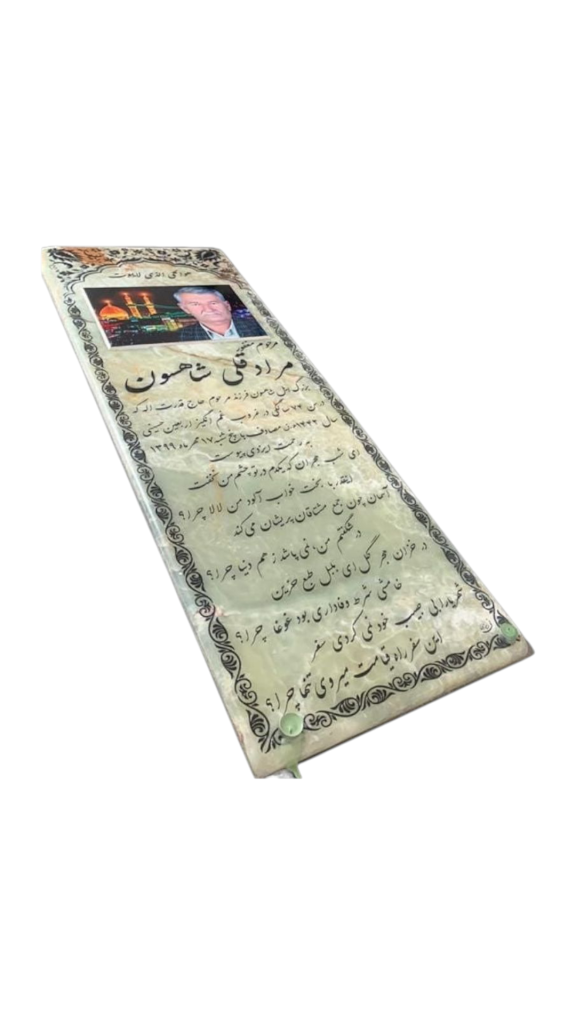 هو الحی الذی لا یموت
مرحوم مغفور
مراد قلی شاهسون
بزرگ ایل شاهسون فرزند مرحوم حاج قدرت اله که
در سن ۷۶ سالگی در غروب غم انگیز اربعین حسینی
سال ۱۴۴۲ مصادف با پنج شنبه ۱۷ مهر ماه ۱۳۹۹
به رحمت ایزدی پیوست
ای شب هجران که یکدم در تو چشم من نخفت
اینقدر با بخت خواب آلود من لالا چرا؟
آسمان چون جمع مشتاقان پریشان می کند
در شگفتم من نمی پاشد ز هم دنیا چرا؟
در خزان هجر گل ای بلبل طبع حزین
خامشی شرط وفاداری بود غوغا چرا؟
شهریارا بی حبیب خود نمی کردی سفر
این سفر راه قیامت میروی تنها چرا؟